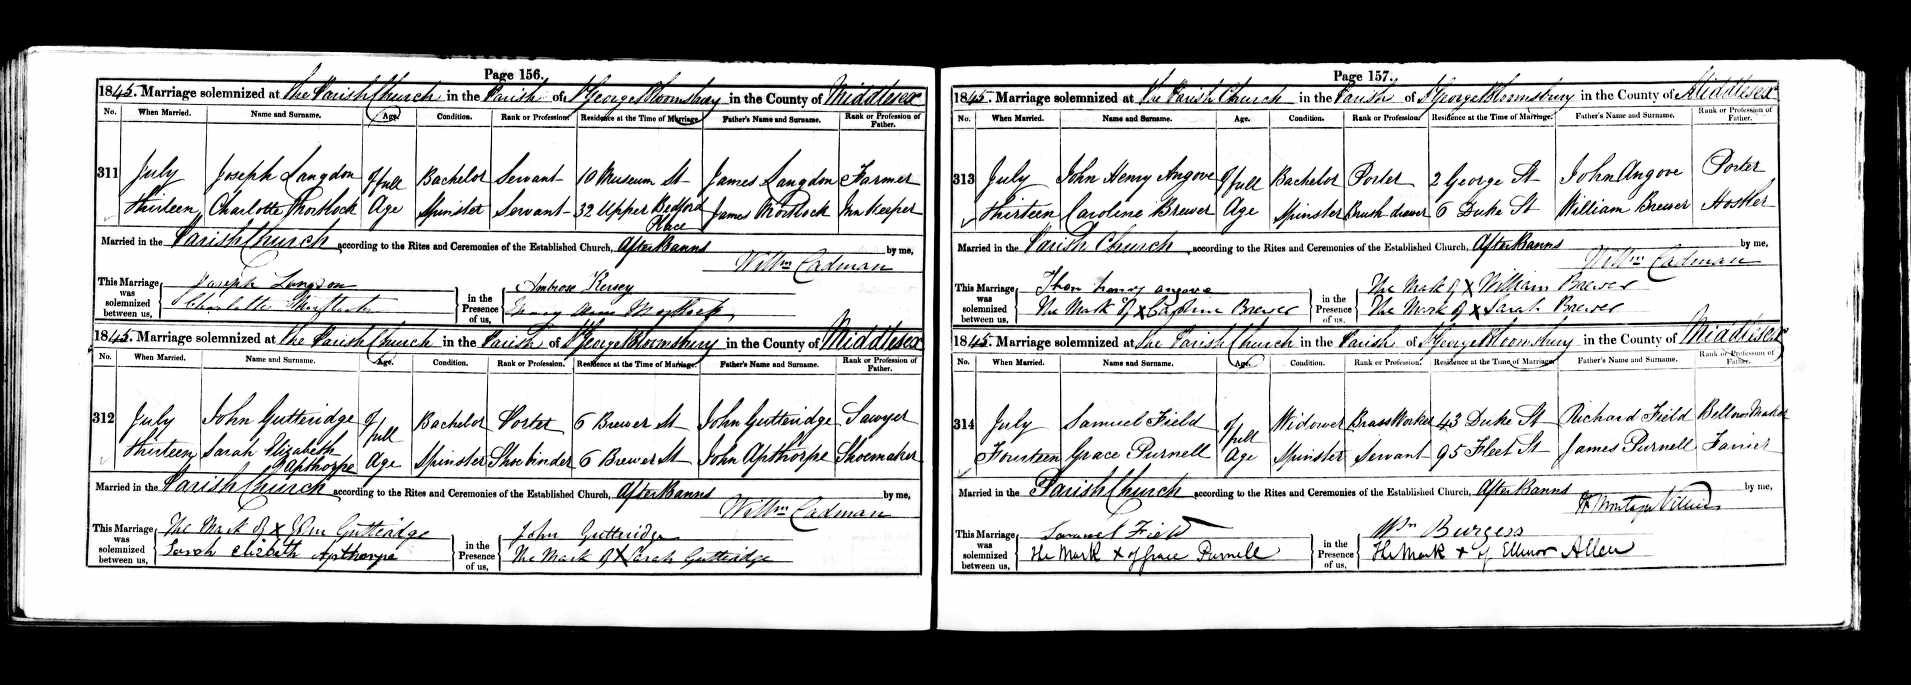 Page 156.
1845. Marriage solemnized at The Parish Church in the Parish of St George Bloomsbury in the County of Middlesex
No. When Married. Name and Surname. Age. Condition. Rank or Profession. Residence at the Time of Marriage. Father's Name and Surname. Rank or Profession of Father.
311 July Joseph Langdon Of full Bachelor Servant 10 Museum St James Langdon Farmer
thirteen Charlotte Mortlock Age Spinster Servant 32 Upper Bedford Place James Mortlock Inn Keeper
Married in the Parish Church according to the Rites and Ceremonies of the Established Church, After Banns by me,
Willm Cadman
This Marriage was solemnized between us, Joseph Langdon in the Presence of us, Ambrose Kersey
Charlotte Mary Ann
1845. Marriage solemnized at The Parish Church in the Parish of St George Bloomsbury in the County of Middlesex
No. When Married. Name and Surname. Age. Condition. Rank or Profession. Residence at the Time of Marriage. Father's Name and Surname. Rank or Profession of Father.
312 July John Gutteridge Of full Bachelor Porter 6 Brewer St John Gutteridge Sawyer
thirteen Sarah Elizabeth Apthorpe Age Spinster Shoebinder 6 Brewer St John Apthorpe Shoemaker
Married in the Parish Church according to the Rites and Ceremonies of the Established Church, After Banns by me,
Willm Cadman
This Marriage was solemnized between us, The Mark of X John Gutteridge in the Presence of us, John Gutteridge
Sarah Elizbeth Apthorpe The Mark of X Sarah Gutteridge
Page 157.
1845. Marriage solemnized at The Parish Church in the Parish of St George Bloomsbury in the County of Middlesex
No. When Married. Name and Surname. Age. Condition. Rank or Profession. Residence at the Time of Marriage. Father's Name and Surname. Rank or Profession of Father.
313 July John Henry Angove Of full Bachelor Porter 2 George St John Angove Porter
thirteen Caroline Brewer Age Spinster Brush drawer 6 Duke St William Brewer Hostler
Married in the Parish Church according to the Rites and Ceremonies of the Established Church, After Banns by me,
Willm Cadman
This Marriage was solemnized between us, henry angove in the Presence of us, The Mark of X William Brewer
The Mark of X Caroline Brewer The Mark of X Sarah Brewer
1845. Marriage solemnized at The Parish Church in the Parish of St George Bloomsbury in the County of Middlesex
No. When Married. Name and Surname. Age. Condition. Rank or Profession. Residence at the Time of Marriage. Father's Name and Surname. Rank or Profession of Father.
314 July Samuel Field Of full Widower Brass Worker 43 Duke St Richard Field Bellows Maker
Fourteen Grace Purnell Age Spinster Servant 95 Fleet St James Purnell Farrier
Married in the Parish Church according to the Rites and Ceremonies of the Established Church, After Banns by me,
H Montagu Villiers
This Marriage was solemnized between us, Samuel Field in the Presence of us, Wm Burgess
The Mark + of Grace Purnell The Mark + of Ellinor Allen